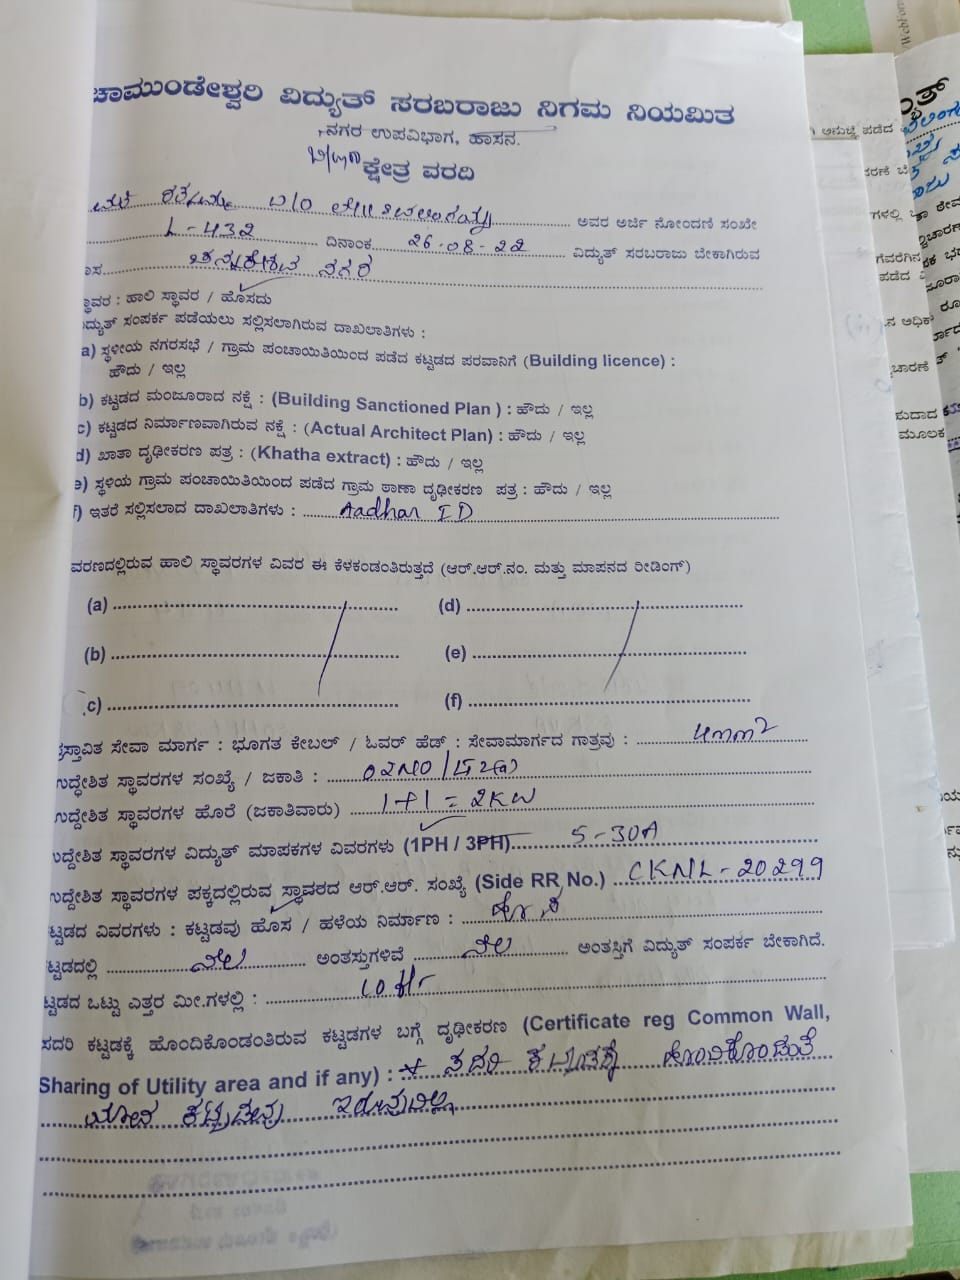 ಚಾಮುಂಡೇಶ್ವರಿ ವಿದ್ಯುತ್ ಸರಬರಾಜು ನಿಗಮ ನಿಯಮಿತ
ನಗರ ಉಪವಿಭಾಗ, ಹಾಸನ.
ಕ್ಷೇತ್ರ ವರದಿ
ಅವರ ಅರ್ಜಿ ನೋಂದಣಿ ಸಂಖೇ
L-432 ದಿನಾಂಕ 26-08-22 ವಿದ್ಯುತ್ ಸರಬರಾಜು ಬೇಕಾಗಿರುವ
ಚನ್ನಕೇಶವ ನಗರ
ಸ್ಥಾವರ : ಹಾಲಿ ಸ್ಥಾವರ / ಹೊಸದು
ದ್ಯುತ್ ಸಂಪರ್ಕ ಪಡೆಯಲು ಸಲ್ಲಿಸಲಾಗಿರುವ ದಾಖಲಾತಿಗಳು :
a) ಸ್ಥಳೀಯ ನಗರಸಭೆ / ಗ್ರಾಮ ಪಂಚಾಯಿತಿಯಿಂದ ಪಡೆದ ಕಟ್ಟಡದ ಪರವಾನಿಗೆ (Building licence) :
ಹೌದು / ಇಲ್ಲ
b) ಕಟ್ಟಡದ ಮಂಜೂರಾದ ನಕ್ಷೆ : (Building Sanctioned Plan ) : ಹೌದು / ಇಲ್ಲ
c) ಕಟ್ಟಡದ ನಿರ್ಮಾಣವಾಗಿರುವ ನಕ್ಷೆ : (Actual Architect Plan) : ಹೌದು / ಇಲ್ಲ
d) ಖಾತಾ ದೃಢೀಕರಣ ಪತ್ರ : (Khatha extract) : ಹೌದು / ಇಲ್ಲ
e) ಸ್ಥಳಿಯ ಗ್ರಾಮ ಪಂಚಾಯಿತಿಯಿಂದ ಪಡೆದ ಗ್ರಾಮ ಠಾಣಾ ದೃಢೀಕರಣ ಪತ್ರ : ಹೌದು / ಇಲ್ಲ
f) ಇತರೆ ಸಲ್ಲಿಸಲಾದ ದಾಖಲಾತಿಗಳು : Aadhar ID
ವರಣದಲ್ಲಿರುವ ಹಾಲಿ ಸ್ಥಾವರಗಳ ವಿವರ ಈ ಕೆಳಕಂಡಂತಿರುತ್ತದೆ (ಆರ್.ಆರ್.ನಂ. ಮತ್ತು ಮಾಪನದ ರೀಡಿಂಗ್)
(a) (d)
(b) (e)
c) (f)
ಪ್ರಸ್ತಾವಿತ ಸೇವಾ ಮಾರ್ಗ : ಭೂಗತ ಕೇಬಲ್ / ಓವರ್ ಹೆಡ್ : ಸೇವಾಮಾರ್ಗದ ಗಾತ್ರವು : 4mm2
ಉದ್ಧೇಶಿತ ಸ್ಥಾವರಗಳ ಸಂಖ್ಯೆ / ಜಕಾತಿ : 02NO/LT2(a)
ಉದ್ದೇಶಿತ ಸ್ಥಾವರಗಳ ಹೊರೆ (ಜಕಾತಿವಾರು) 1+1 = 2KW
ಉದ್ದೇಶಿತ ಸ್ಥಾವರಗಳ ವಿದ್ಯುತ್ ಮಾಪಕಗಳ ವಿವರಗಳು (1PH / 3PH) 5-30A
ಉದ್ದೇಶಿತ ಸ್ಥಾವರಗಳ ಪಕ್ಕದಲ್ಲಿರುವ ಸ್ಥಾವರದ ಆರ್.ಆರ್. ಸಂಖ್ಯೆ (Side RR No.) CKNL-20299
ಟ್ಟಡದ ವಿವರಗಳು : ಕಟ್ಟಡವು ಹೊಸ / ಹಳೆಯ ನಿರ್ಮಾಣ : ಹೊಸ
ಟ್ಟಡದಲ್ಲಿ ನೆಲ ಅಂತಸ್ತುಗಳಿವೆ ನೆಲ ಅಂತಸ್ತಿಗೆ ವಿದ್ಯುತ್ ಸಂಪರ್ಕ ಬೇಕಾಗಿದೆ.
ಟ್ಟಡದ ಒಟ್ಟು ಎತ್ತರ ಮೀ.ಗಳಲ್ಲಿ : 10
ಸದರಿ ಕಟ್ಟಡಕ್ಕೆ ಹೊಂದಿಕೊಂಡಂತಿರುವ ಕಟ್ಟಡಗಳ ಬಗ್ಗೆ ದೃಢೀಕರಣ (Certificate reg Common Wall,
Sharing of Utility area and if any) : ಸದರಿ ಕಟ್ಟಡಕ್ಕೆ ಹೊಂದಿಕೊಂಡಂತೆ
ಯಾವ ಕಟ್ಟಡವು ಇರುವುದಿಲ್ಲ